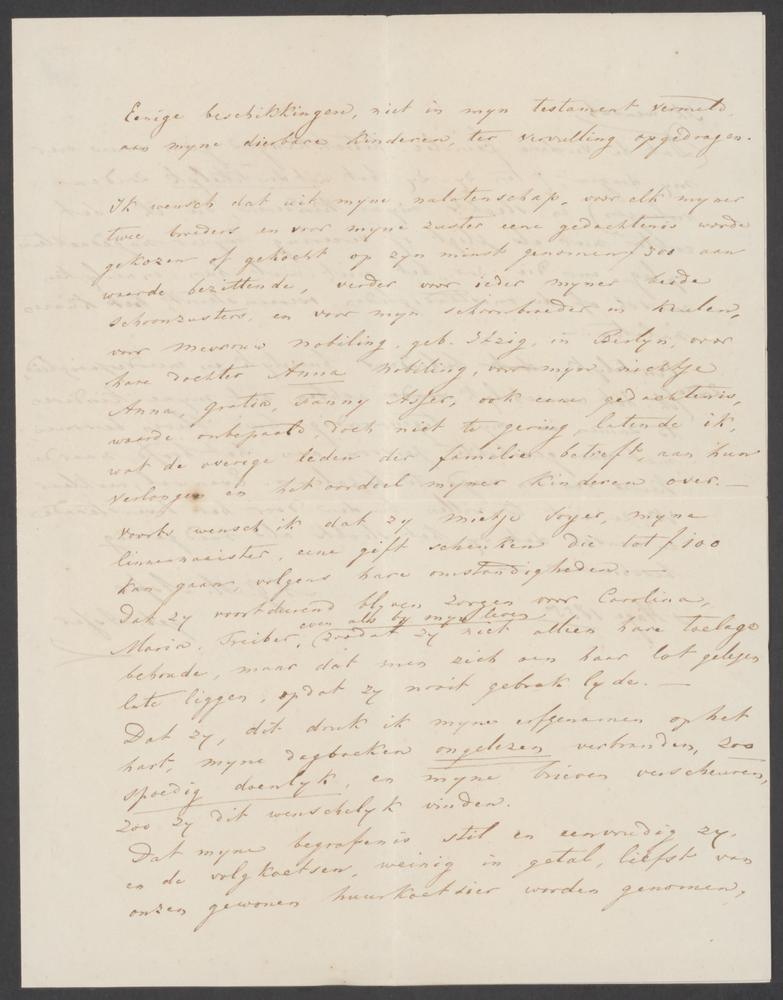 Eenige beschikkingen, niet in myn testament vermeld,
aan myne dierbare kinderen, ter vervulling opgedragen.
Ik wensch dat uit myne nalatenschap, voor elk myner
twee broeders en voor myne zuster eene gedachtenis worde
gekozen of gekocht op zyn minst genomen f 300 aan
waarde bezittende, verder voor ieder myner beide
schoonzusters, en voor myn schoonbroeder in Keulen,
voor Mevrouw Nobiling, geb. Itzig, in Berlyn, voor
hare dochter Anna Nobiling, voor myn nichtje
Anna, Gratia, Fanny Asser, ook eene gedachtenis,
waarde onbepaald, doch niet te gering, latende ik,
wat de overige leden der familie betreft, aan hun
verlangen en het oordeel myner kinderen over. —
Voorts wensch ik dat zy Mietje Soyer, myne
linnennaister, eene gift schenken die tot f 100
kan gaan, volgens hare omstandigheden. —
Dat zy voortdurend blyven zorgen voor Carolina,
even als by myn leven
Maria, Treiber, (zoodat zy niet alleen hare toelage
behoude, maar dat men zich aan haar lot gelegen
late liggen, opdat zy nooit gebrek lyde. —
Dat zy, dit druk ik myne erfgenamen op het
hart, myne dagboeken ongelezen verbranden, zoo
spoedig doenlyk, en myne brieven verscheuren,
zoo zy dit wenschelyk vinden.
Dat myne begrafenis stil en eenvoudig zy,
en de volgkoetsen, weinig in getal, liefst van
onzen gewonen huurkoetsier worden genomen,